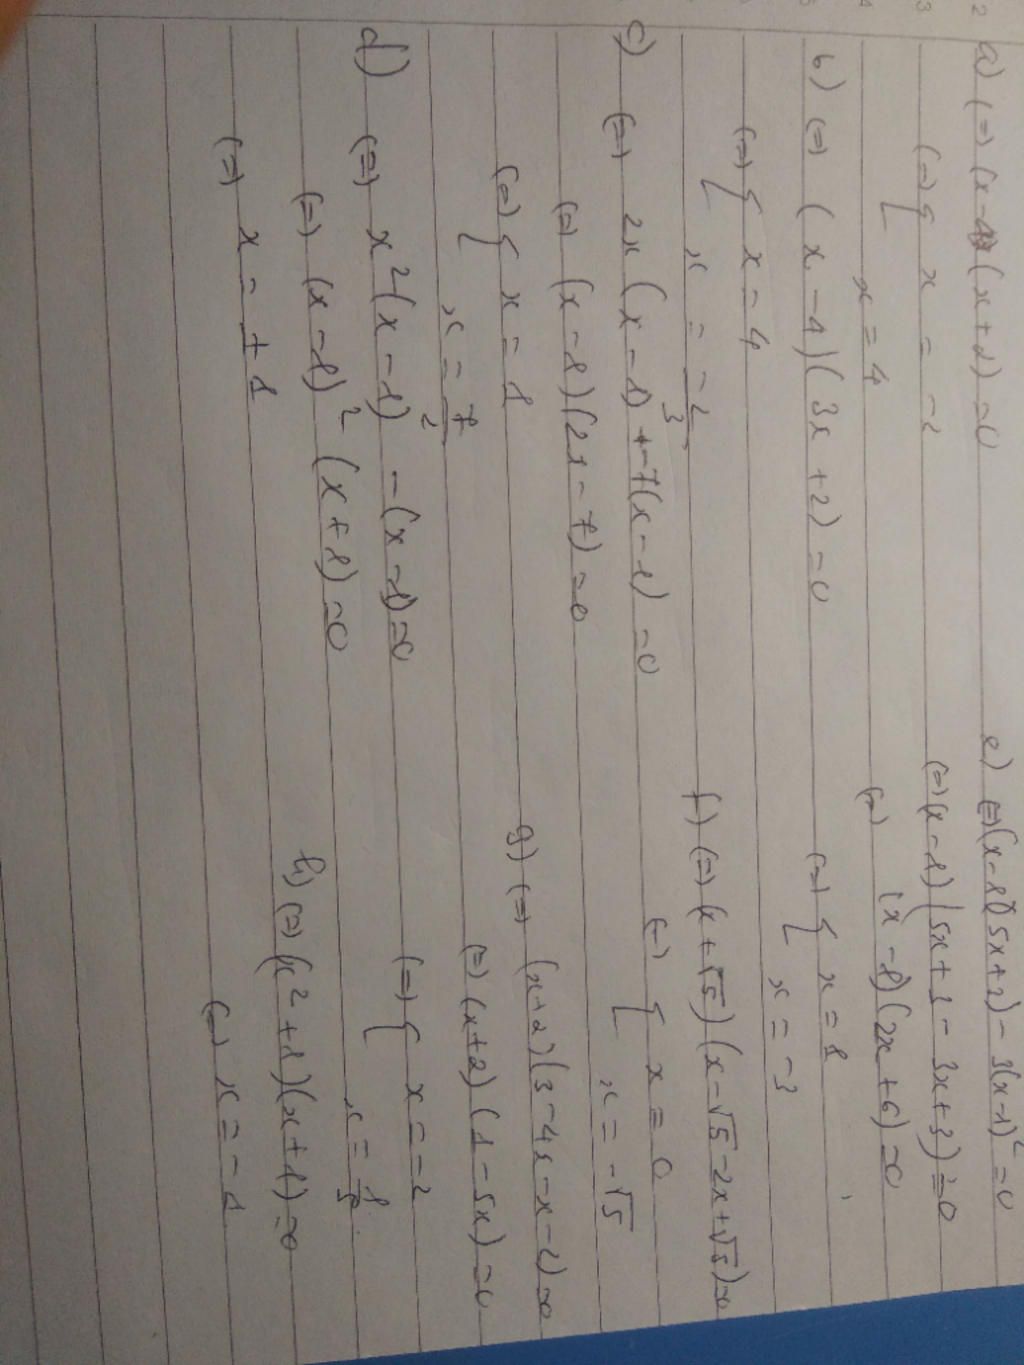 a) (=) (x-4)(x+2)=0
(=) [ x = -2
x = 4
b) (=) (x-4)(3x+2)=0
(=) [ x = 4
x = -2/3
c) (=) 2x(x-1)+-7(x-1)=0
(=) (x-1)(2x-7)=0
(=) [ x = 1
x = 7/2
d) (=) x²(x-1) -(x-1)=0
(=) (x-1)² (x+1)=0
(=) x = ±1
e) (=) (x-1)(5x+2) - 3(x-1)²=0
(=) (x-1)(5x+3-3x+3)=0
(=) (x-1)(2x+6)=0
(=) [ x = 1
x = -3
f) (=) (x+√5)(x-√5-2x+√5)=0
(=) [ x = 0
x = -√5
g) (=) (x+2)(3-4x-x-2)=0
(=) (x+2)(1-5x)=0
(=) [ x = -2
x = 1/5
h) (=) (x²+1)(x+1)=0
(=) x = -1